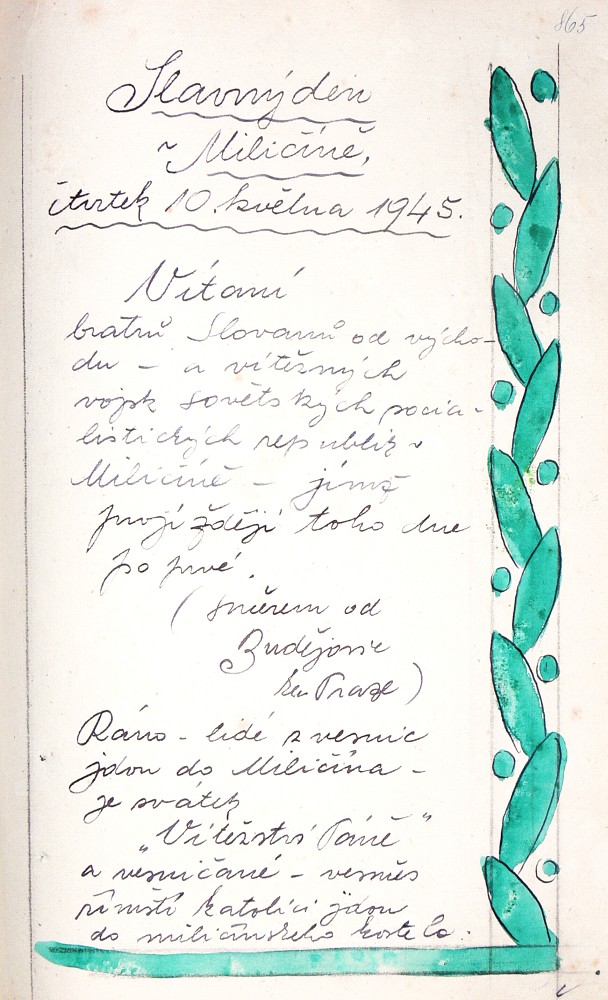 865
Slavný den
v Miličíně,
čtvrtek 10. května 1945.
Vítaní
bratrů Slovanů od výcho-
du – a vítězných
vojsk sovětských socia-
listických republik v
Miličíně – jímž
projíždějí toho dne
po prvé.
(směrem od
Budějovic
ku Praze)
Ráno – lidé z vesnic
jdou do Miličína –
je svátek
„Vítězství Páně“
a vesničané – vesměs
římští katolíci jdou
do miličínského kostela.